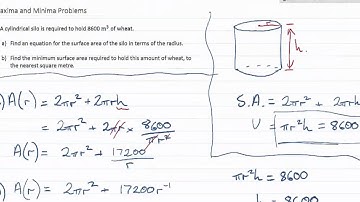 axima and Minima Problems
A cylindrical silo is required to hold 8600 m³ of wheat.
a) Find an equation for the surface area of the silo in terms of the radius.
b) Find the minimum surface area required to hold this amount of wheat, to
the nearest square metre.
r
h.
) A(r) = 2πr² + 2πrh
= 2πr² + 2πr × 8600/πr²
A(r) = 2πr² + 17200/r
) A(r) = 2πr² + 17200r⁻¹
S.A. = 2πr² + 2πrh
V = πr²h = 8600
πr²h = 8600
h = 8600